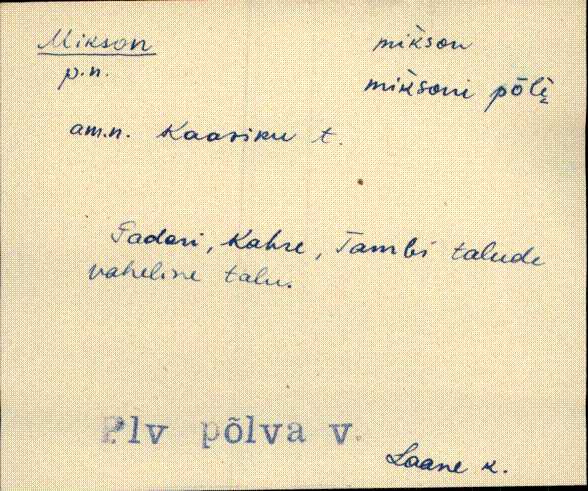 Mikson mikson
p.n. miksoni põli̬
am.n. Kaasiku t.
Padari, Kahre, Tambi talude
vaheline talu.
Plv põlva v.
Laane k.